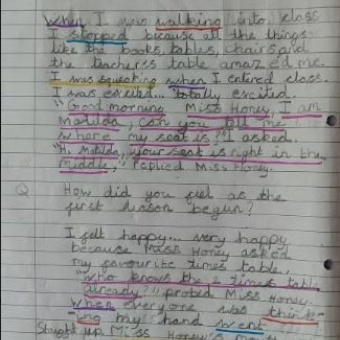 When I was walking into class
I stopped because all the things
like the books, tables, chairs and
the teachers table amazed me.
I was squeaking when I entired class.
I was excited... totally excited.
"Good morning Miss Honey, I am
Matilda, can you tell me
where my seat is?" I asked.
"Hi Matilda, your seat is right in the
middle," replied Miss Honey.
Q How did you feel as the
first lesson begun?
I felt happy... very happy
because Miss Honey asked
my favourite times table.
"Who knows the 2 times table
already?" probed Miss Honey.
When everyone was think-
ing my hand went
Straight up. Miss Honey's